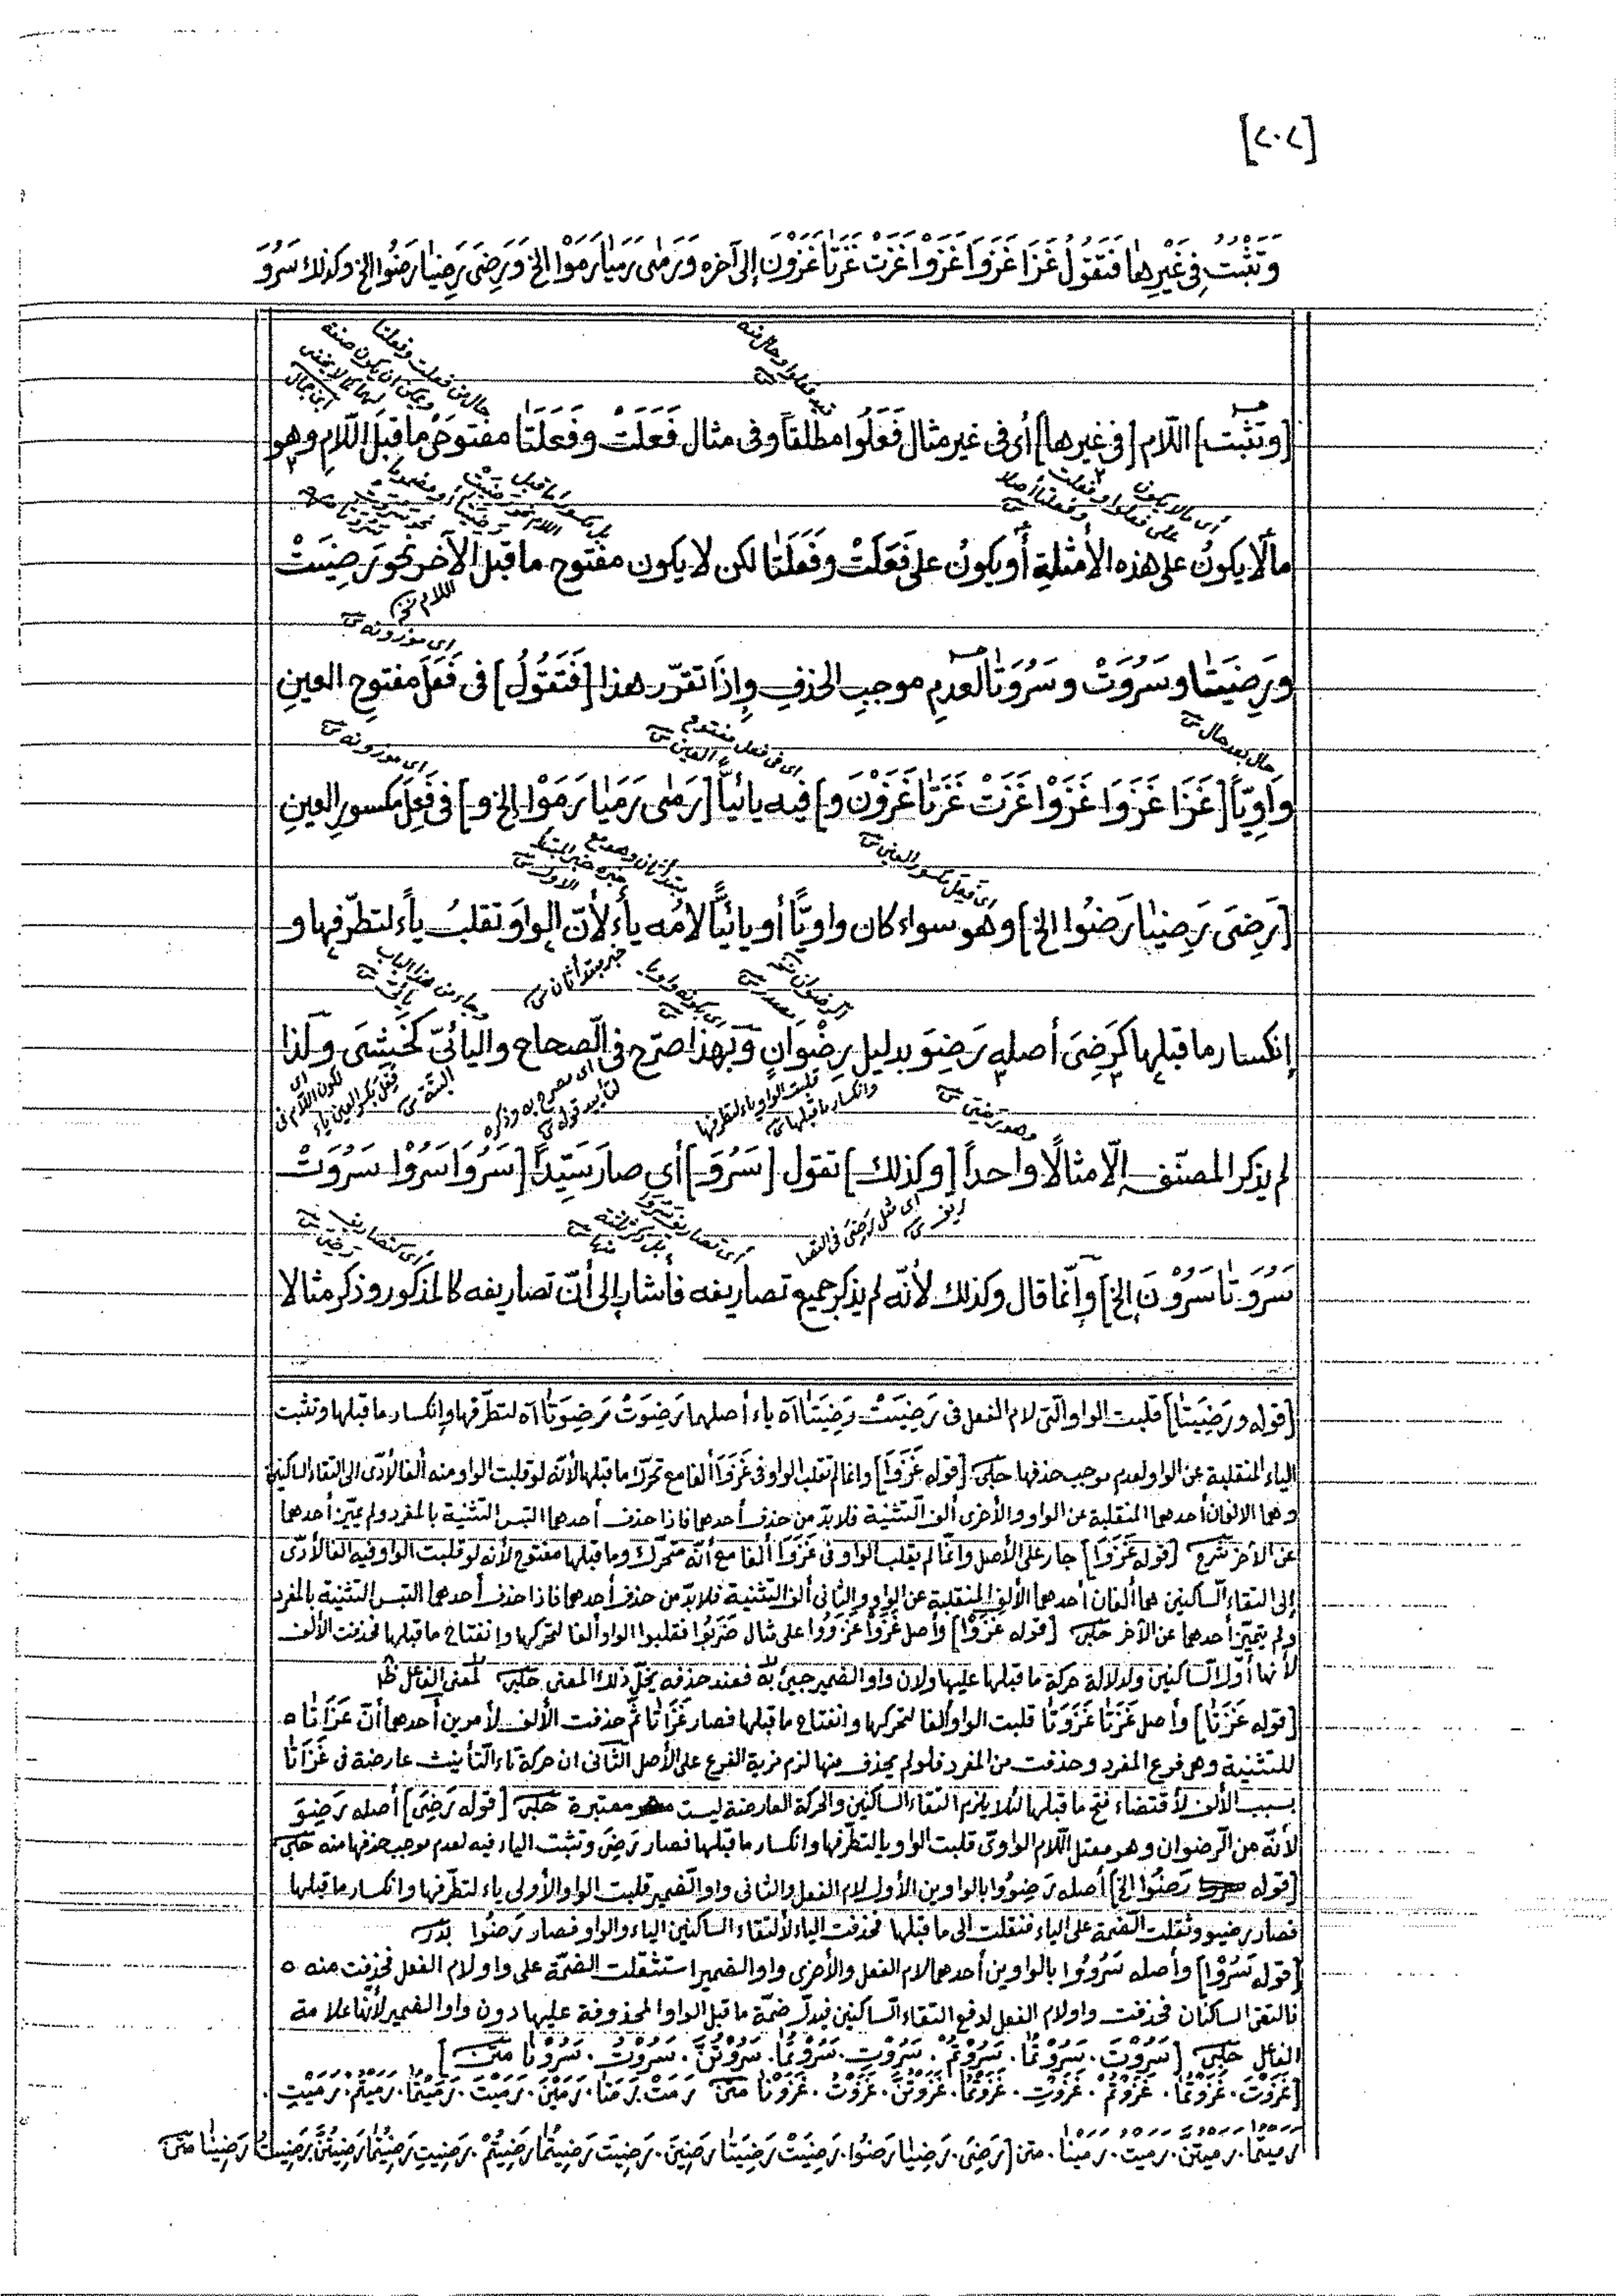 [٢٠٢]
وَتَثْبُتُ فِي غَيْرِهَا فَتَقُولُ غَزَا غَزَوَا غَزَوْا غَزَتْ غَزَتَا غَزَوْنَ إلى آخره وَرَمٰى رَمَيَا رَمَوْا الخ وَرَضِيَ رَضِيَا رَضُوا الخ وكذلك سَرُوَ
حال من فعلت وفعلتا
ويمكن ان يكون صفة
لهما كما لا يخفى
[وتثبت] اللّام [في غيرها] أى فى غير مثال فَعَلُوا مطلقاً وفى مثال فَعَلَتْ وفَعَلَتَا مفتوحَىْ ما قبلَ اللّامِ وهو
أى مالا يكون
على فعلوا وفعلت
وفعلتا أصلا
ما لا يكونُ على هذه الأمثلةِ أو يكونُ على فَعَلَتْ وفَعَلَتَا لكن لا يكون مفتوح ما قبل الآخر نحو رَضِيَتْ
اللام نخ
اى موزونه
ورَضِيَتَا وسَرُوَتْ وسَرُوَتَا لعدمِ موجبِ الحذفِ وإذا تقرّر هذا [فَتَقُولُ] فى فَعَلَ مفتوحِ العينِ
حال بعد حال
اى فى فعل مفتوح العين
اى موزونه
واوِيّاً [غَزَا غَزَوَا غَزَوْا غَزَتْ غَزَتَا غَزَوْنَ و] فيه يائيّاً [رَمٰى رَمَيَا رَمَوْا الخ و] فى فَعِلَ مكسورِ العينِ
اى فعل مكسور العين
مبتدا ثان وهو مع
خبره خبر المبتدا
الاول
[رَضِىَ رَضِيَا رَضُوا الخ] وهو سواء كان واويّاً أو يائيّاً لامُه ياءٌ لأنّ الواوَ تقلبُ ياءً لتطرّفها و
خبر مبتدأ ثان
إنكسار ما قبلها كرَضِىَ أصله رَضِوَ بدليل رِضْوَانٍ وبهذا صرّح فى الصحاح واليائىّ كخَشِىَ ولذا
وهو رضى
قلبت الواو ياء لتطرفها
وانكسار ما قبلها
اى صرح به وذكره
لتأييد قوله
لم يذكر المصنّف إلّا مثالًا واحداً [وكذلك] تقول [سَرُوَ] أى صار سَيّداً [سَرُوَا سَرُوْا سَرُوَتْ
اى مثل رضى فى التصا
ريف
أى كتصاريف
رضى
سَرُوَتَا سَرُوْنَ الخ] وإنّما قال وكذلك لأنّه لم يذكر جميع تصاريفه فأشار إلى أنّ تصاريفه كالمذكور وذكر مثالا
[قوله ورَضِيَتَا] قلبت الواو الّتى لام الفعل فى رَضِيَتْ رَضِيَتَا اه ياء أصلهما رَضِوَتْ رَضِوَتَا اه لتطرّفها وإنكسار ما قبلها وتثبت
الياء المنقلبة عن الواو لعدم موجب حذفها حلبى [قوله غَزَوَا] وانما لم تقلب الواو فى غَزَوَا ألفا مع تحرك ما قبلها لأنّه لو قلبت الواو منه ألفا لأدّى الى التقاء الساكنين
وهما الالفان أحدهما المنقلبة عن الواو والأخرى ألف التّثنية فلابدّ من حذف أحدهما فاذا حذف أحدهما التبس التثنية بالمفرد ولم يميّز أحدهما
عن الأخر شرح [قوله غَزَوَا] جار على الأصل وإنّما لم يقلب الواو فى غَزَوَا ألفا مع أنّه متحرّك وما قبلها مفتوح لأنه لو قلبت الواو فيه الفا لأدّى
إلى التقاء السّاكنين هما ألفان أحدهما الألف المنقلبة عن الواو والثانى ألف التثنية فلابدّ من حذف أحدهما فاذا حذف أحدهما التبس التثنية بالمفرد
ولم يتميّز أحدهما عن الأخر حلبى [قوله غَزَوْا] وأصل غَزَوْا غَزَوُوا على مثال ضَرَبُوا فقلبوا الواو ألفا لتحرّكها وإنفتاح ما قبلها فحذفت الألف
لأنها أوّل السّاكنين ولدلالة حركة ما قبلها عليها ولان واو الضمير جيئ به فعند حذفه يخلّ ذلك المعنى حلبى لمعنى الفاعل ظ
[قوله غَزَتَا] وأصل غَزَتَا غَزَوَتَا قلبت الواو ألفا لتحركها وانفتاح ما قبلها فصار غَزَاتَا ثمّ حذفت الألف لأمرين أحدهما أنّ غَزَاتَا ه
للتثنية وهى فرع المفرد وحذفت من المفرد فلو لم يحذف منها لزم مزية الفرع على الأصل الثّانى ان حركة تاء التّأنيث عارضة فى غَزَاتَا
بسبب الألف لأقتضاء فتح ما قبلها لئلا يلزم التقاء الساكنين والحركة العارضة ليست معتبرة حلبى [قوله رَضِىَ] أصله رَضِوَ
لأنّه من الرضوان وهو معتل اللّام الواوىّ قلبت الواو يا لتطرّفها وانكسار ما قبلها فصار رَضِىَ وتثبت الياء فيه لعدم موجب حذفها منه حلبى
[قوله رَضُوا الخ] أصله رَضِوُوا بالواوين الأول لام الفعل والثانى واو الضمير قلبت الواو الأولى ياء لتطرّفها وانكسار ما قبلها
فصار رضيو وثقلت الضمة على الياء فنقلت الى ما قبلها فحذفت الياء لألتقاء الساكنين الياء والواو فصار رَضُوا بدر
[قوله سَرُوْا] وأصله سَرُوُوا بالواوين أحدهما لام الفعل والأخرى واو الضمير استثقلت الضمّة على واو لام الفعل فحذفت منه ه
فالتقى الساكنان فحذفت واو لام الفعل لدفع التقاء السّاكنين فيدلّ ضمّة ما قبل الواو المحذوفة عليها دون واو الضمير لأنّها علامة
الفاعل حلبى [سَرُوْتَ. سَرُوْتُمَا. سَرُوْتُمْ. سَرُوْتِ. سَرُوْتُمَا. سَرُوْتُنَّ. سَرُوْتُ. سَرُوْنَا متن]
[غَزَوْتَ. غَزَوْتُمَا. غَزَوْتُمْ. غَزَوْتِ. غَزَوْتُمَا. غَزَوْتُنَّ. غَزَوْتُ. غَزَوْنَا متن رَمَتْ. رَمَتَا. رَمَيْنَ. رَمَيْتَ. رَمَيْتُمَا. رَمَيْتُمْ. رَمَيْتِ.
رَمَيْتُمَا. رَمَيْتُنَّ. رَمَيْتُ. رَمَيْنَا. متن [رَضِىَ. رَضِيَا رَضُوا. رَضِيَتْ رَضِيَتَا رَضِينَ. رَضِيتَ رَضِيتُمَا رَضِيتُمْ. رَضِيتِ رَضِيتُمَا رَضِيتُنَّ. رَضِيتُ رَضِينَا متن